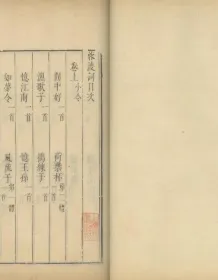 詞目次
卷上 小令
一首 荷葉杯
漁歌子 一首 搗練子 一首
憶江南 一首 憶王孫 一首
如夢令 一首 風流子